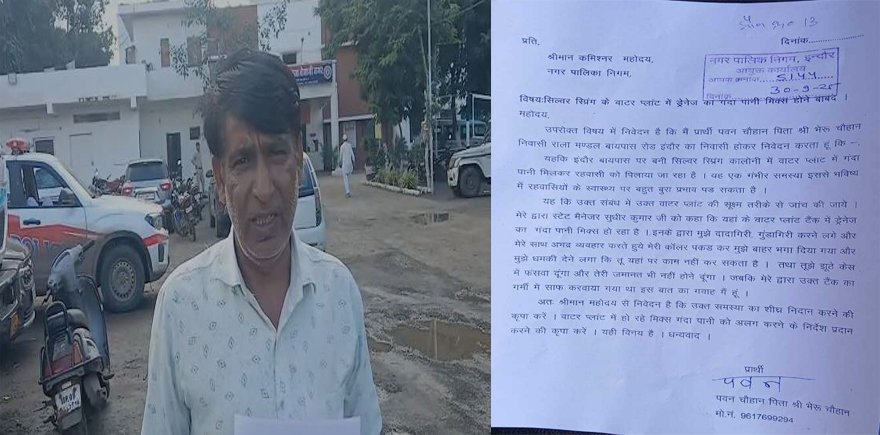 प्रति,
दिनांक
श्रीमान कमिश्नर महोदय,
नगर पालिका निगम,
नगर पालिक निगम, इन्दौर
आयुक्त कार्यालय
आवक क्रमांक
दिनांक 30-9-25
विषय:सिल्वर स्प्रिंग के वाटर प्लांट में ड्रेनेज का गंदा पानी मिक्स होने बाबद ।
महोदय,
उपरोक्त विषय में निवेदन है कि मैं प्रार्थी पवन चौहान पिता श्री भेरू चौहान
निवासी राला मण्डल बायपास रोड इंदौर का निवासी होकर निवेदन करता हूं कि –,
यहकि इंदौर बायपास पर बनी सिल्वर स्प्रिंग कालोनी में वाटर प्लांट में गंदा
पानी मिलकर रहवासी को पिलाया जा रहा है । यह एक गंभीर समस्या इससे भविष्य
में रहवासियों के स्वास्थ्य पर बहुत बुरा प्रभाव पड सकता है ।
यह कि उक्त संबंध में उक्त वाटर प्लांट की सूक्ष्म तरीके से जांच की जाये ।
मेरे द्वारा स्टेट मैनेजर सुधीर कुमार जी को कहा कि यहां के वाटर प्लांट टैंक में ड्रेनेज
का गंदा पानी मिक्स हो रहा है ।इनके द्वारा मुझे दादागिरी, गुंडागिरी करने लगे और
मेरे साथ अभद्र व्यवहार करते हुये मेरी कॉलर पकड कर मुझे बाहर भगा दिया गया और
मुझे धमकी देने लगा कि तू यहां पर काम नहीं कर सकता है । तथा तुझे झूटे केस
में फंसवा दूंगा और तेरी जमानत भी नहीं होने दूंगा । जबकि मेरे द्वारा उक्त टैंक का
गर्मी में साफ करवाया गया था इस बात का गवाह मैं हूं ।
अतः श्रीमान महोदय से निवेदन है कि उक्त समस्या का शीघ्र निदान करने की
कृपा करें । वाटर प्लांट में हो रहे मिक्स गंदा पानी को अलग करने के निर्देश प्रदान
करने की कृपा करें । यही विनय है । धन्यवाद ।
प्रार्थी
पवन
पवन चौहान पिता श्री भेरू चौहान
मो.नं. 9617699294